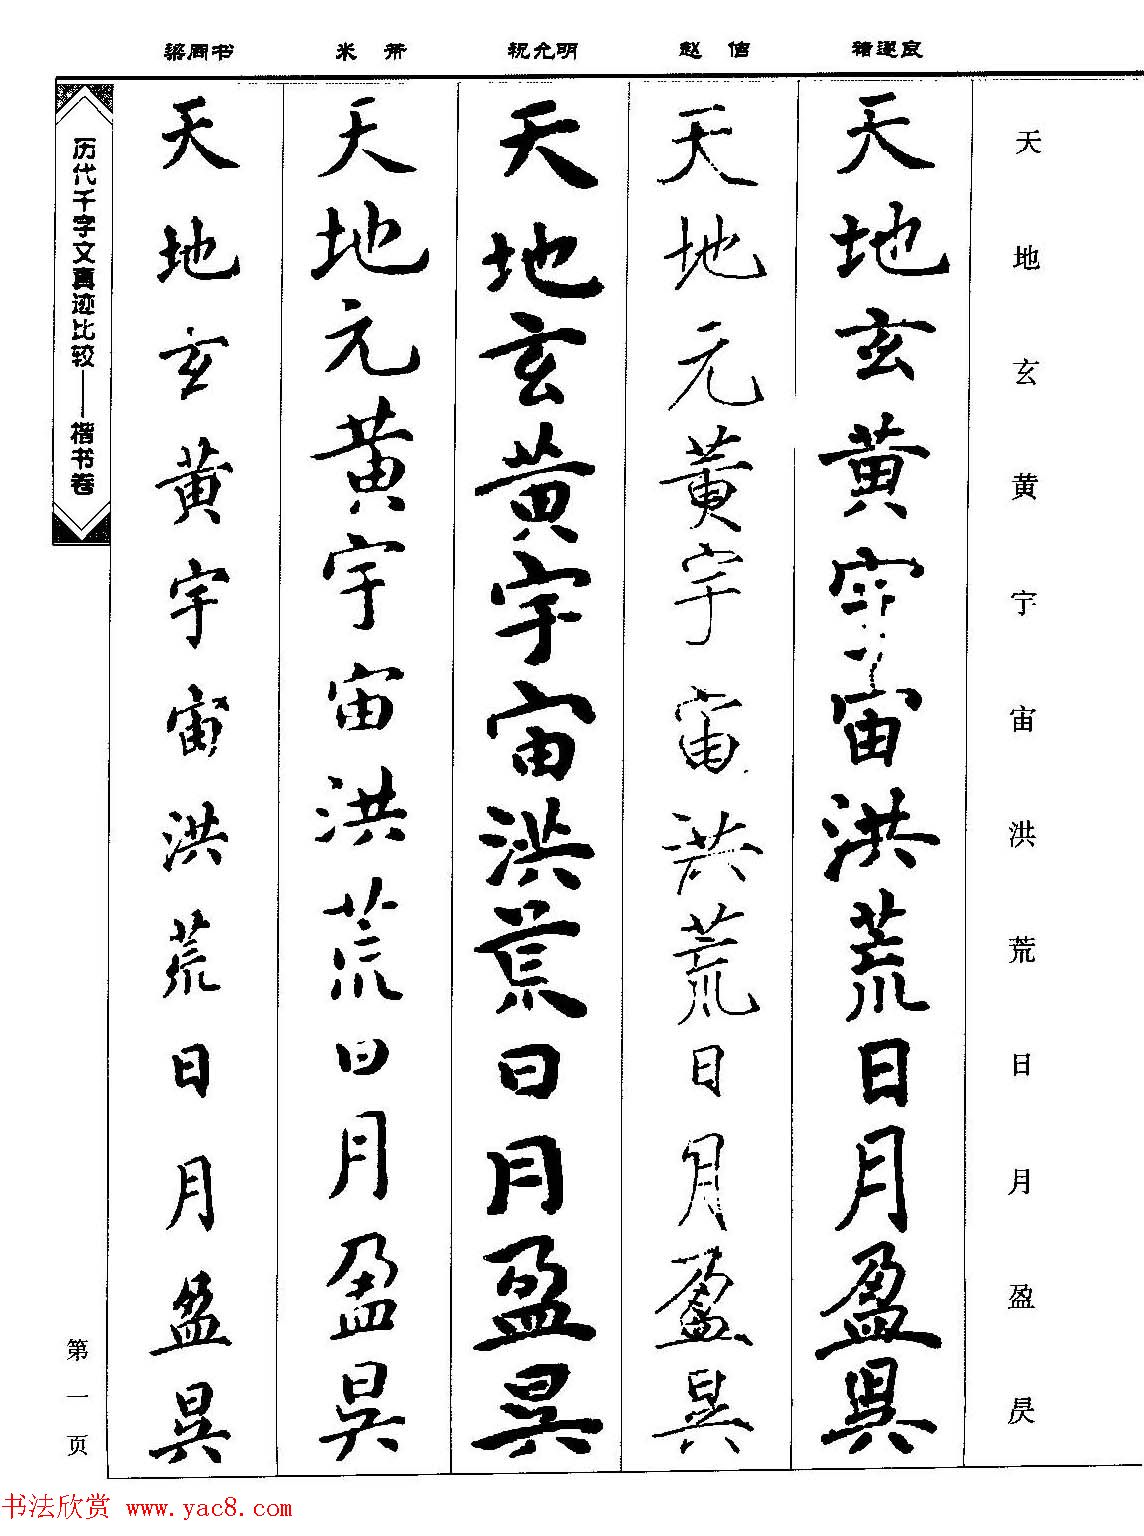 天地玄黄宇宙洪荒日月盈昃
褚遂良
天地玄黄宇宙洪荒日月盈昃
赵 佶
天地元黄宇宙洪荒日月盈昃
祝允明
天地玄黄宇宙洪荒日月盈昃
米 芾
天地元黄宇宙洪荒日月盈昃
梁同书
天地玄黄宇宙洪荒日月盈昃
历代千字文真迹比较——楷书卷
第一页
书法欣赏 www.yac8.com